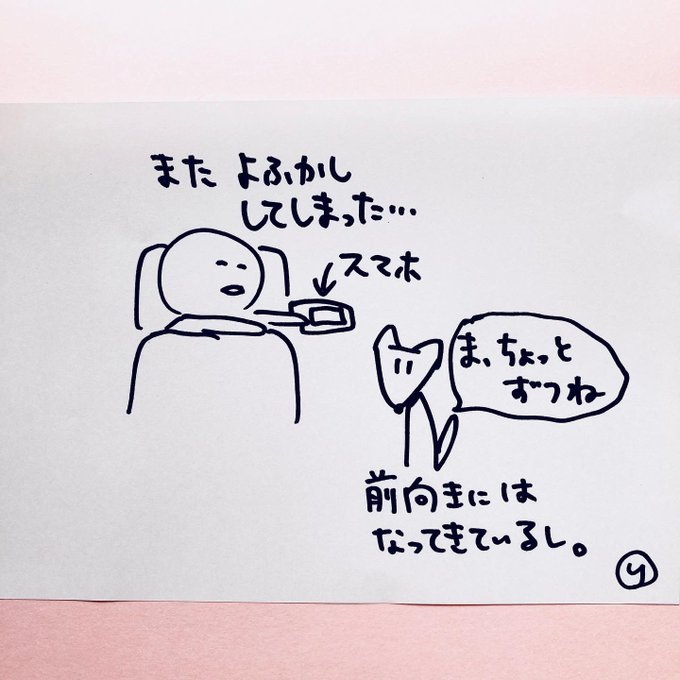 また よふかし
してしまった…
スマホ
ま、ちょっと
ずつね
前向きには
なってきているし。
y